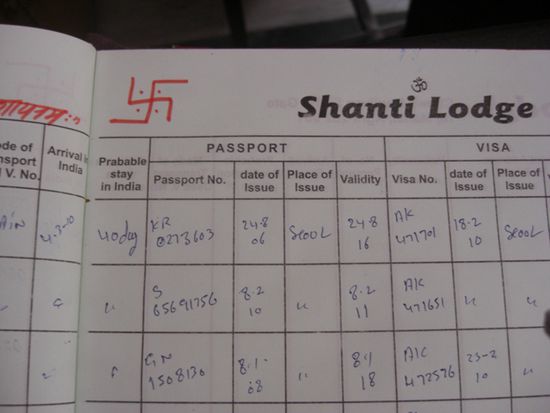 ॐ
Shanti Lodge
PASSPORT VISA
Arrival in India
Prabable stay in India
Passport No.
date of Issue
Place of Issue
Validity
Visa No.
date of Issue
Place Issue
4-3-10
40 day
KR
0273603
24.8
06
Seool
24.8
16
AK
471701
18.2
10
Seool
S
65691756
8.2
10
"
8.2
11
AK
471651
"
"
GN
1508130
8.1.
08
"
18
AK
472576
23-2
10
"